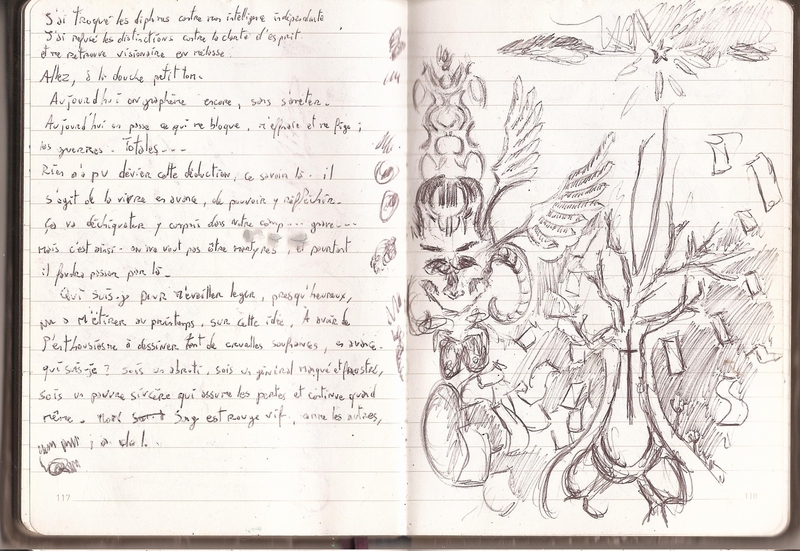 J'ai troqué les diplômes contre mon intelligence indépendante
J'ai refusé les distinctions contre la clarté d'esprit
et me retrouve visionnaire en mélasse.
Allez, à la douche petit ton.
Aujourd'hui on graphène encore, sans s'arrêter.
Aujourd'hui on passe ce qui me bloque, m'effraie et me fige ;
les guerres. Totales...
Rien n'a pu dévier cette déduction, ce savoir là. il
s'agit de la vivre en avance, de pouvoir y réfléchir.
Ça va déchiqueter y compris dans notre camp... grave...
Mais c'est ainsi. on ne veut pas être martyres, et pourtant
il faudra passer par là.
Qui suis-je pour m'éveiller léger, presqu'heureux,
m'étirer au printemps, sur cette idée, À avoir de
l'enthousiasme à dessiner tant de cruelles souffrances, en avance.
qui suis-je ? suis un abruti, suis un général
suis un pauvre sincère qui assume les pertes et continue quand
même. Sang est rouge vif, comme les autres,
117
118